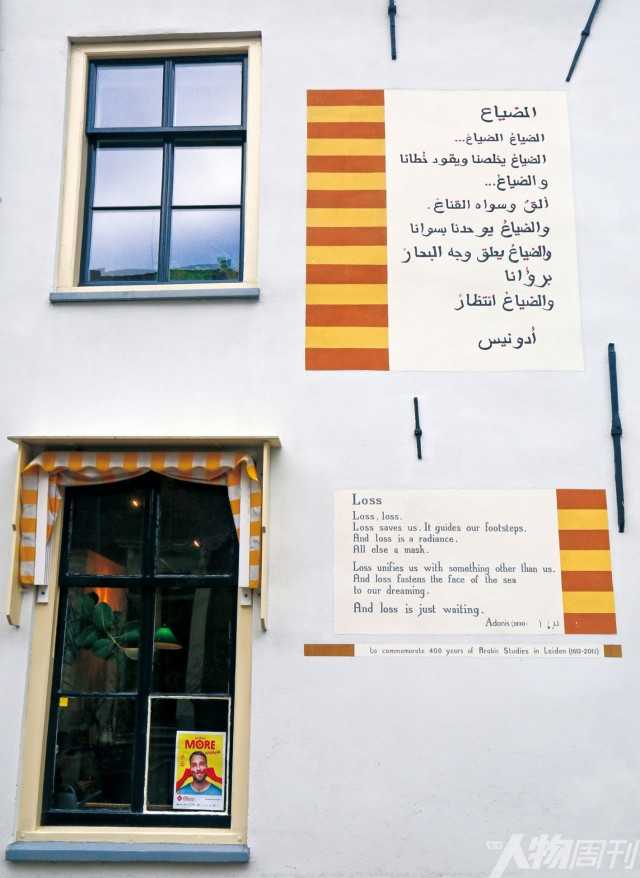 الضياع
الضياعُ الضياعُ...
الضياعُ يخلصنا ويقود خُطانا
والضياعُ...
ألقٌ وسواه القناعُ.
والضياعُ يوحدنا بسوانا
والضياعُ يعلق وجه البحارْ
برؤانا
والضياعُ انتظارْ
أدونيس
Loss
Loss, loss.
Loss saves us. It guides our footsteps.
And loss is a radiance.
All else a mask.
Loss unifies us with something other than us.
And loss fastens the face of the sea
to our dreaming.
And loss is just waiting.
Adonis (1930- )
to commemorate 400 years of Arabic Studies in Leiden (1613-2013)
MORE
人物周刊